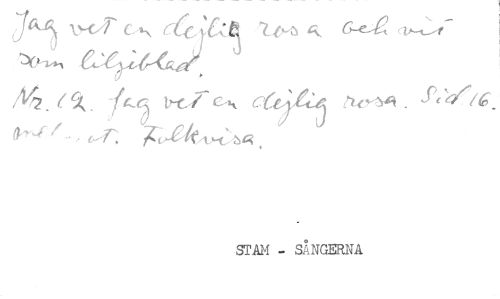 Jag vet en dejlig rosa och vit
som liljeblad.
Nr. 12. Jag vet en dejlig rosa. Sid 16.
Folkvisa.
STAM - SÅNGERNA